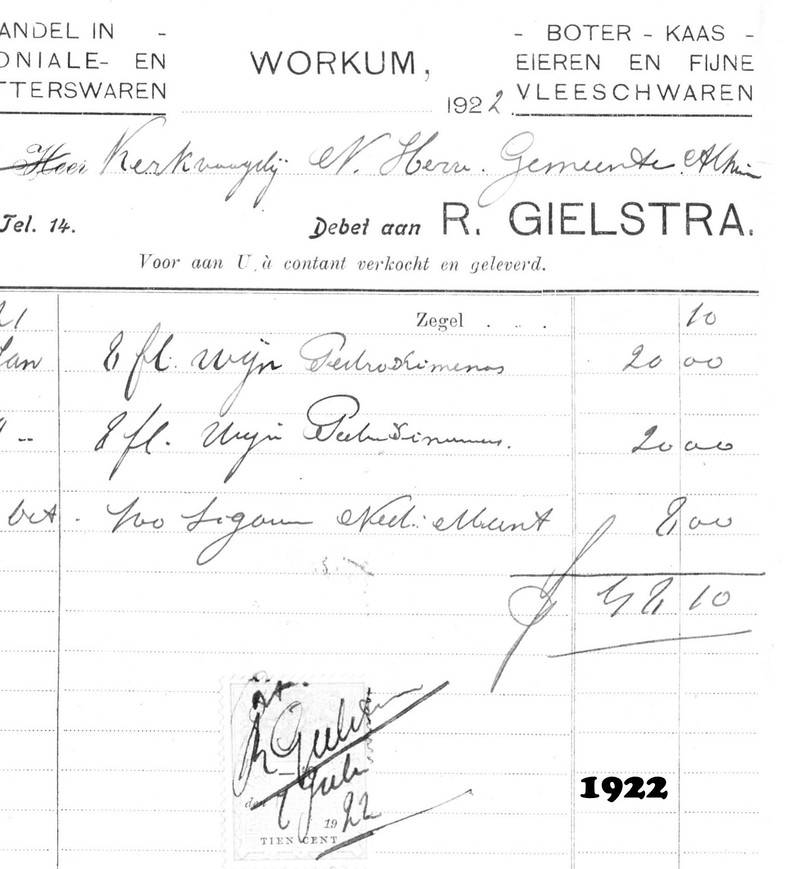 ANDEL IN -
ONIALE- EN
TTERSWAREN
WORKUM,
1922
- BOTER - KAAS -
EIEREN EN FIJNE
VLEESCHWAREN
Heer Kerkvoogdij N. Herv. Gemeente
Tel. 14. Debet aan R. GIELSTRA.
Voor aan U à contant verkocht en geleverd.
21 Zegel . . . 10
Jan 8 fl. Wijn Pedro Ximenos 20 00
8 fl. Wijn 20 00
Oct. 100 Sigaren Ned. Munt 8 00
48 10
R Gielstra
den 8 Juli
1922
TIEN CENT
1922